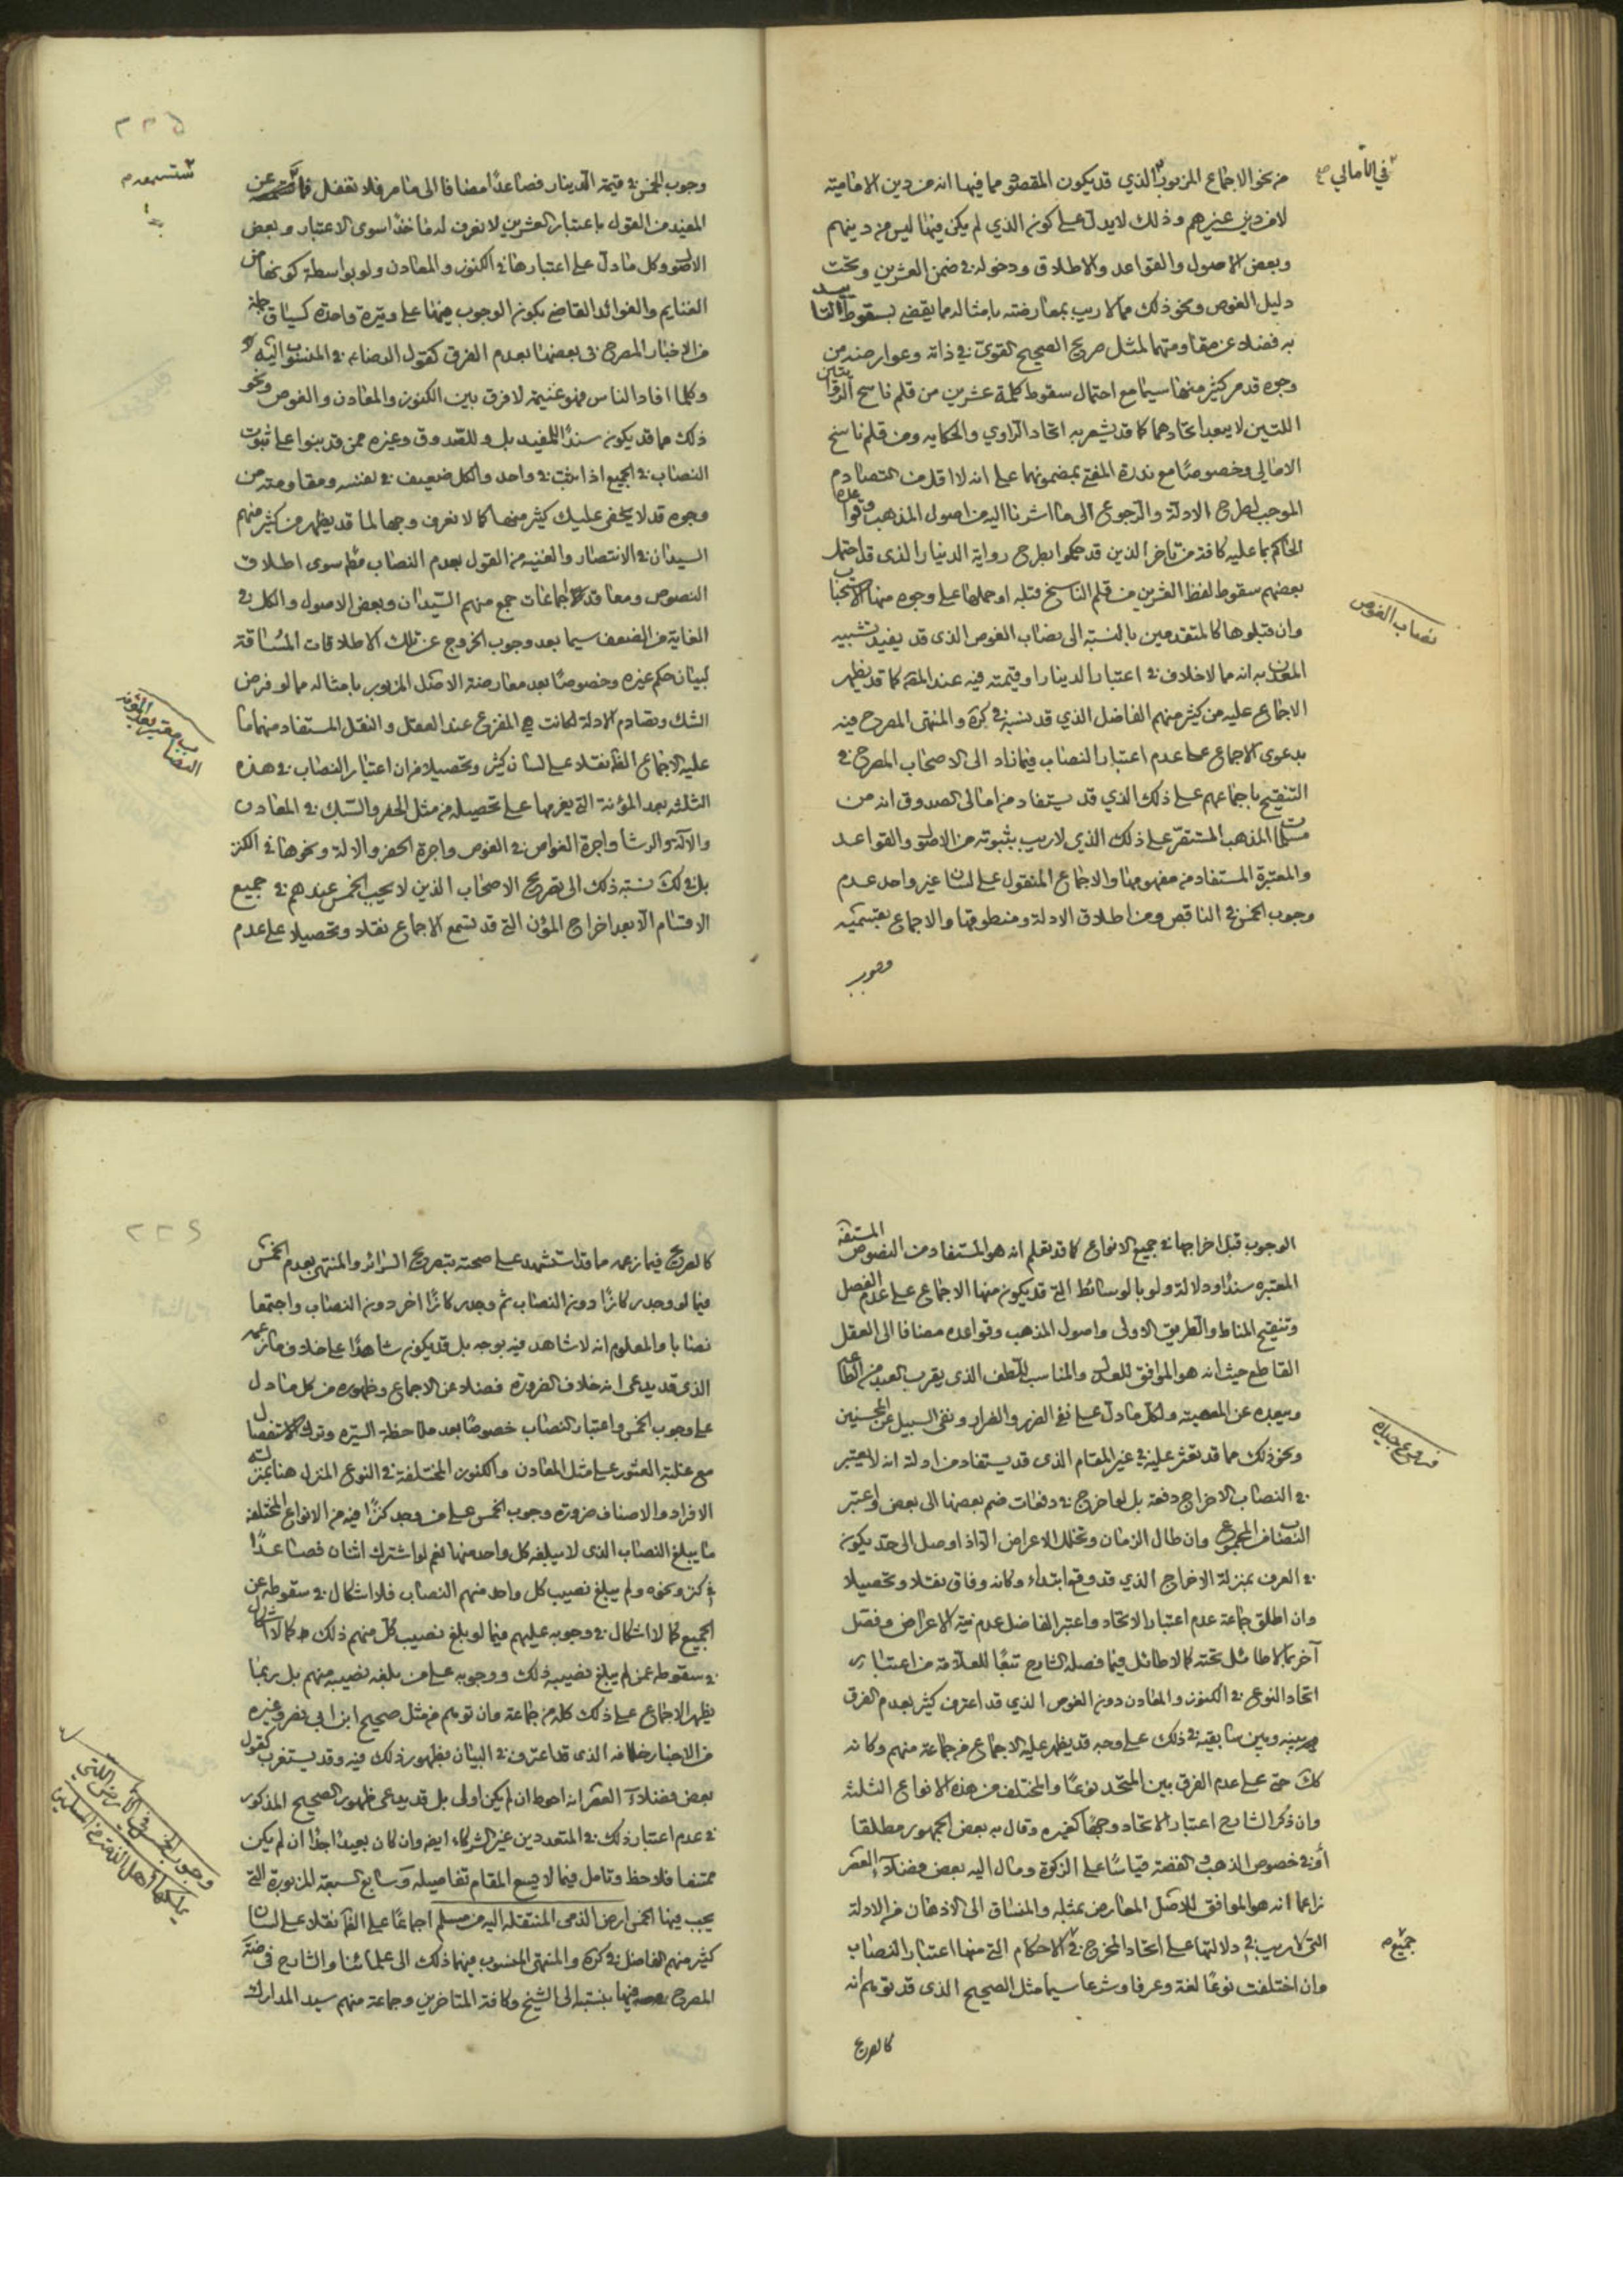 في الأمالي صح
من نحو الاجماع المزبور الذي قد يكون المقصود مما فيها انه من دين الامامية
لا من دين غيرهم وذلك لا يدل على كون الذي لم يكن فيها ليس من دينهم
وبعض الاصول والقواعد والاطلاق ودخوله في ضمن العشرين وتحت
دليل الغوص ونحو ذلك مما لا ريب بمعارضته بامثاله مما يقضي بسقوط التأييد
به فضلا عن مقاومتها لمثل صريح الصحيح القوي في ذاته وعوارضه من
وجوه قد مر كثير منها سيما مع احتمال سقوط كلمة عشرين من قلم ناسخ الروايتين
اللتين لا يبعد اتحادهما كما قد يشعر به اتحاد الراوي والحكايه ومن قلم ناسخ
الامالي وخصوصا مع ندرة المفتي بمضمونهما على انه لا اقل من التصادم
الموجب لطرح الادلة والرجوع الى ما اشرنا اليه من اصول المذهب وقواعده
الحاكم بما عليه كافة من تاخر الذين قد حكموا بطرح رواية الدينار الذى قد احتمل
بعضهم سقوط لفظ العشرين من قلم الناسخ قبله او حملها على وجوه منها الاستحباب
نصاب الغوص
وان قبلوها كالمتقدمين بالنسبة الى نصاب الغوص الذى قد يفيد تشبيه
المعدن به انه مما لا خلاف في اعتبار الدينار او قيمته فيه عند كما قد يظهر
الاجماع عليه من كثير منهم الفاضل الذي قد نسبه في كرة والمنتهى المصرح فيه
بدعوى الاجماع على عدم اعتبار النصاب فيما زاد الى الاصحاب المصرح في
التنقيح باجماعهم على ذلك الذي قد يستفاد من امالى الصدوق انه من
مسلمات المذهب المستقر على ذلك الذي لا ريب بثبوته من الاصول والقواعد
والمعتبرة المستفاد من مفهومها والاجماع المنقول على لسان غير واحد عدم
وجوب الخمس في الناقص ومن اطلاق الادلة ومنطوقها والاجماع بقسميه
وجوب
٢٢٥
وجوب الخمس في قيمة الدينار فصاعدا مضافا الى ما مر فلا تغفل فما عن
المفيد من القول باعتبار العشرين لا نعرف له ماخذا سوى الاعتبار وبعض
الاصول وكل ما دل على اعتبارها في الكنوز والمعادن ولو بواسطة كونها من
الغنايم والفوائد القاضي بكون الوجوب فيها على وتيرة واحدة كسياق جلة
من الاخبار المصرح في بعضها بعدم الفرق كقول الرضا ع في المنسوب اليه
وكلما افاد الناس فهو غنيمة لا فرق بين الكنوز والمعادن والغوص ونحو
ذلك مما قد يكون سندا للمفيد بل وللصدوق وغيره ممن قد بنوا على ثبوت
النصاب في الجميع اذا ثبت في واحد والكل ضعيف في نفسه ومقاومته من
وجوه قد لا يخفى عليك كثير منها كما لا نعرف وجها لما قد يظهر من كثير منهم
السيدان في الانتصار والغنيه من القول بعدم النصاب سوى اطلاق
النصوص ومعاقد اجماعات جمع منهم السيدان وبعض الاصول والكل في
الغاية من الضعف سيما بعد وجوب الخروج عن تلك الاطلاقات المساقة
لبيان حكم غيره وخصوصا بعد معارضة الاصل المزبور بامثاله مما لو فرض
الشك وتصادم الادلة لكانت هي المفزع عند العقل والنقل المستفاد منهما ما
النصاب يعتبر بعد المؤنة
عليه الاجماع نقلا على لسان كثير وتحصيلا من ان اعتبار النصاب في هذه
الثلثه بعد المؤنة التي يغرمها على تحصيله من مثل الحفر والسبك في المعادن
والآلة والرشا واجرة الغواص في الغوص واجرة الحفر والالة ونحوها في الكنز
بل في لك نسبة ذلك الى تصريح الاصحاب الذين لا يجب الخمس عندهم في جميع
الاقسام الا بعد اخراج المؤن التي قد تسمع الاجماع نقلا وتحصيلا على عدم
الوجوب قبل اخراجها في جميع الانواع كما قد تعلم انه هو المستفاد من النصوص
المعتبره سندا ودلالة ولو بالوسائط التي قد يكون منها الاجماع على عدم الفصل
وتنقيح المناط والطريق الاولى واصول المذهب وقواعده مضافا الى العقل
القاطع حيث انه هو الموافق للعدل والمناسب للطف الذى يقرب العبد من الطاعة
ويبعده عن المعصية ولكل ما دل على نفي الضرر والضرار ونفى السبيل عن المحسنين
فروع جيده
ونحو ذلك مما قد تعثر عليه في غير المقام الذى قد يستفاد من ادلته انه لا يعتبر
في النصاب الاخراج دفعة بل لو اخرج في دفعات ضم بعضها الى بعض واعتبر
النصاب من المجموع وان طال الزمان وتخلل الاعراض الا اذا وصل الى حد يكون
في العرف بمنزلة الاخراج الذي قد وقع ابتداء وكانه وفاقي نقلا وتحصيلا
وان اطلق جماعة عدم اعتبار الاتحاد واعتبر الفاضل عدم نية الاعراض وفصل
آخر بما لا طائل تحته كما لا طائل فيما فصله الشارح تبعا للعلامة من اعتبار
اتحاد النوع في الكنوز والمعادن دون الغوص الذي قد اعترف كثير بعدم الفرق
بينه وبين سابقيه في ذلك على وجه قد يظهر عليه الاجماع من جماعة منهم وكانه
كك حتى على عدم الفرق بين المتحد نوعا والمختلف من هذه الانواع الثلثه
وان ذكر الشارح اعتبار الاتحاد وجها كغيره وقال به بعض الجمهور مطلقا
أو في خصوص الذهب والفضة قياسا على الزكوة ومال اليه بعض فضلاء العصر
زاعما انه هو الموافق للاصل المعارض بمثله والمنساق الى الاذهان من الادلة
جميع
التي لا ريب في دلالتها على اتحاد المخرج في الاحكام التي منها اعتبار النصاب
وان اختلفت نوعا لغة وعرفا وشرعا سيما مثل الصحيح الذى قد توهم انه
كالصريح
٢٢٦
كالصريح فيما زعمه ما قد استشهد على صحته بتصريح السرائر والمنتهى بعدم الخمس
فيما لو وجد ركازا دون النصاب ثم وجد ركازا اخر دون النصاب واجتمعا
نصابا والمعلوم انه لا شاهد فيه بوجه بل قد يكون شاهدا على خلاف ما زعمه
الذى قد يدعى انه خلاف الضرورة فضلا عن الاجماع وظهوره من كل ما دل
على وجوب الخمس واعتبار النصاب خصوصا بعد ملاحظة السيره وترك الاستفصال
مع غلبة العثور على مثل المعادن والكنوز المختلفة في النوع المنزل هنا بمنزلة
الافراد والاصناف ضرورة وجوب الخمس على من وجد كنزا فيه من الانواع المختلفه
ما يبلغ النصاب الذى لا يبلغه كل واحد منها نعم لو اشترك اثنان فصاعدا
في كنز ونحوه ولم يبلغ نصيب كل واحد منهم النصاب فلا اشكال في سقوطه عن
الجميع كما لا اشكال في وجوبه عليهم فيما لو بلغ نصيب كل منهم ذلك كما لا اشكال
في سقوطه عمن لم يبلغ نصيبه ذلك ووجوبه على من بلغه نصيبه منهم بل ربما
يظهر الاجماع على ذلك كله من جماعة وان توهم من مثل صحيح ابن ابي نصر وغيره
من الاخبار خلافه الذى قد اعترف في البيان بظهور ذلك فيه وقد يستغرب كقول
بعض فضلاء العصر انه احوط ان لم يكن اولى بل قد يدعى ظهور الصحيح المذكور
في عدم اعتبار ذلك في المتعددين غير الشركاء ايضا وان كان بعيدا جدا ان لم يكن
ممتنعا فلاحظ وتامل فيما لا يسع المقام تفاصيله وسابع السبعة المزبورة التي
وجوب الخمس في الارض التي يملكها اهل الذمة من المسلمين
يجب فيها الخمس ارض الذمى المنتقله اليه من مسلم اجماعا نقلا على لسان
كثير منهم الفاضل في كرة والمنتهى المنسوب فيهما ذلك الى علمائنا والشارح في ضة
المصرح فيها بنسبته الى الشيخ وكافة المتاخرين وجماعة منهم سيد المدارك